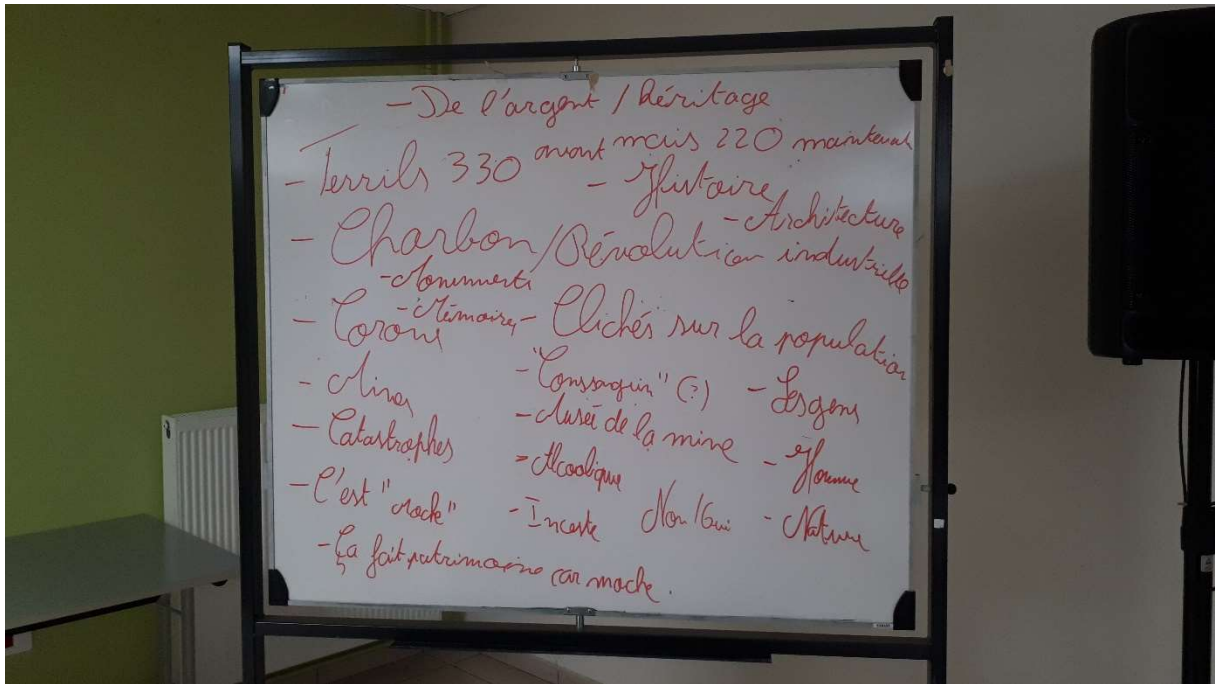 - De l'argent / Héritage
- Terrils 330 avant mais 220 maintenant
- Histoire
- Architecture
- Charbon / Révolution industrielle
- Monuments
- Mémoires
- Corons
- Clichés sur la population
- Mines
- "Consanguin" (?)
- Les gens
- Catastrophes
- Musée de la mine
- Alcoolique
- Homme
- C'est "moche"
- Inceste
Non / Oui
- Nature
- Ça fait patrimoine car moche.